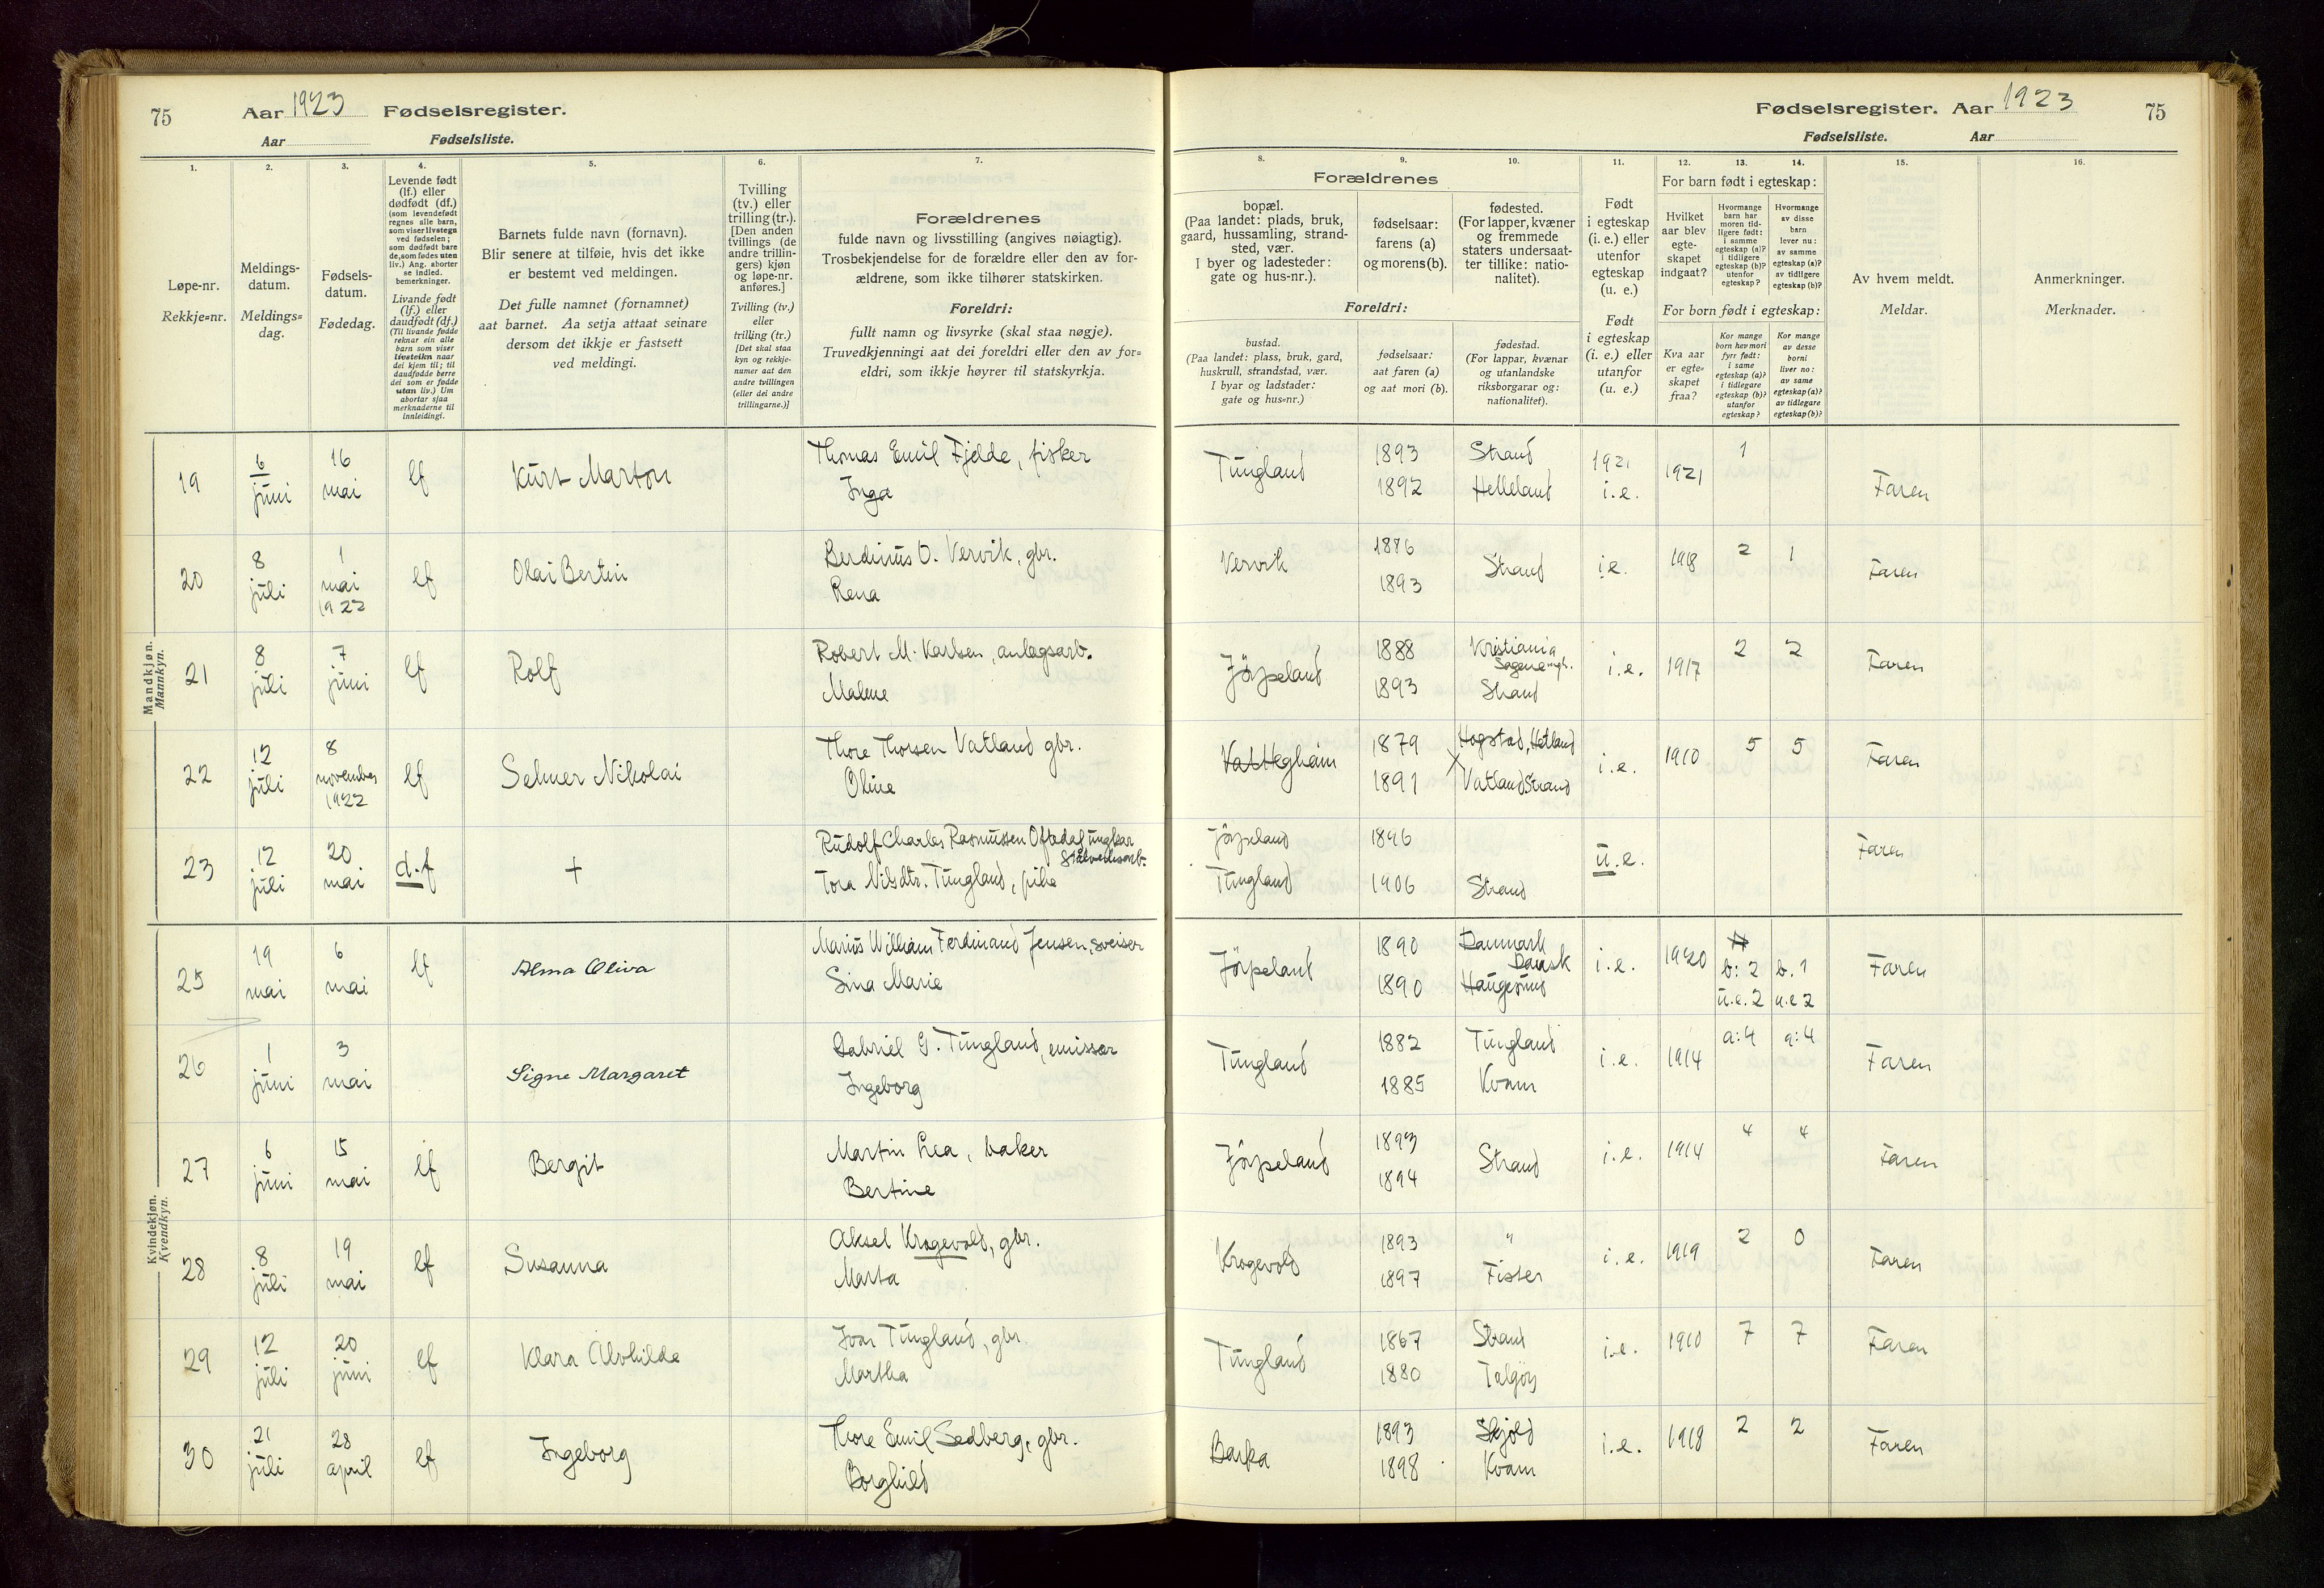 75 Aar 1923 Fødselsregister.
Aar Fødselsliste.
Fødselsregister. Aar 1923 75
Fødselsliste. Aar
1. 2. 3. 4. 5. 6. 7.
Løpe-nr.
Rekkje=nr.
Meldings-
datum.
Meldings=
dag.
Fødsels-
datum.
Fødedag.
Levende født
(lf.) eller
dødfødt (df.)
(som levendefødt
regnes alle barn,
som viser livstegn
ved fødselen;
som dødfødt bare
de, som fødes uten
liv.) Ang. aborter
se indled.
bemerkninger.
Livande født
(lf.) eller
daudfødt (df.)
(Til livande fødde
reknar ein alle
barn som viser
livsteikn naar
dei kjem til; til
daudfødde berre
dei som er fødde
utan liv.) Um
abortar sjaa
merknaderne til
innleidingi.
Barnets fulde navn (fornavn).
Blir senere at tilføie, hvis det ikke
er bestemt ved meldingen.
Det fulle namnet (fornamnet)
aat barnet. Aa setja attaat seinare
dersom det ikkje er fastsett
ved meldingi.
Tvilling
(tv.) eller
trilling (tr.).
[Den anden
tvillings (de
andre trillin-
gers) kjøn
og løpe-nr.
anføres.]
Tvilling (tv.)
eller
trilling (tr.)
[Det skal staa
kyn og rekkje-
numer aat den
andre tvillingen
(eller dei andre
trillingarne.)]
Forældrenes
fulde navn og livsstilling (angives nøiagtig).
Trosbekjendelse for de forældre eller den av for-
ældrene, som ikke tilhører statskirken.
Foreldri:
fullt namn og livsyrke (skal staa nøgje).
Truvedkjenningi aat dei foreldri eller den av for=
eldri, som ikkje høyrer til statskyrkja.
8. 9. 10. 11. 12. 13. 14. 15. 16.
Forældrenes
bopæl.
(Paa landet: plads, bruk,
gaard, hussamling, strand-
sted, vær.
I byer og ladesteder:
gate og hus-nr.).
fødselsaar:
farens (a)
og morens (b).
fødested.
(For lapper, kvæner
og fremmede
staters undersaat-
ter tillike: natio-
nalitet).
Foreldri:
bustad.
(Paa landet: plass, bruk, gard,
huskrull, strandstad, vær.
I byar og ladstader:
gate og hus=nr.)
fødselsaar:
aat faren (a)
og aat mori (b).
fødestad.
(For lappar, kvænar
og utanlandske
riksborgarar og:
nationalitet).
Født
i egteskap
(i. e.) eller
utenfor
egteskap
(u. e.)
Født
i egteskap
(i. e.) eller
utanfor
egteskap
(u. e.)
For barn født i egteskap:
Hvilket
aar blev
egte-
skapet
indgaat?
Hvormange
barn har
moren tid-
ligere født:
i samme
egteskap (a)?
i tidligere
egteskap (b)?
utenfor
egteskap?
Hvormange
av disse
barn
lever nu:
av samme
egteskap (a)?
av tidligere
egteskap (b)?
For born født i egteskap:
Kva aar
er egte=
skapet
fraa?
Kor mange
born hev mori
fyrr født:
i same
egteskap (a)?
i tidlegare
egteskap (b)?
utanfor
egteskap?
Kor mange
av desse
borni
liver no:
av same
egteskap (a)?
av tidlegare
egteskap (b)?
Av hvem meldt.
Meldar.
Anmerkninger.
Merknader.
Mandkjøn.
Mannkyn.
19 6 juni 16 mai lf Kurt Marton Thomas Emil Fjelde, fisker
Inga
Tungland 1893 Strand 1921 i.e. 1921 1 Faren
1892 Helleland
20 8 juli 1 mai 1922 lf Olai Bertin Berdinius O. Vervik, gbr.
Rena
Vervik 1886 Strand i.e. 1918 2 1 Faren
1893
21 8 juli 7 juni lf Rolf Robert M. Karlsen, anlagsarb.
Malene
Jörpeland 1888 Kristiania
Sagene mgh.
1893 Strand i.e. 1917 2 2 Faren
22 12 juli 8 november 1922 lf Selmer Nikolai Thore Thorsen Vatland gbr.
Oline
1879 Hogstad, Hetland
1891 Vatland Strand i.e. 1910 5 5 Faren
23 12 juli 20 mai d.f + Rudolf Charles Rasmussen Oftedal ungkar
Stålverksarb.
Tora Nilsdtr. Tungland, pike
Jörpeland 1896 u.e. Faren
Tungland 1906 Strand
Kvindekjøn.
Kvendkyn.
25 19 mai 6 mai lf Alma Oliva Marius William Ferdinand Jensen, sveiser
Sina Marie
Jörpeland 1890 Danmark
Dansk
1890 Haugesund i.e. 1920 b: 2 b. 1 Faren
u.e. 2 u.e 2
26 1 juni 3 mai Signe Margaret Gabriel G. Tungland, emissær
Ingeborg
Tungland 1882 Tungland i.e. 1914 a: 4 a: 4 Faren
1885 Kvam
27 6 juni 15 mai lf Bergit Martin Lea, baker
Bertine
Jörpeland 1893 Strand i.e. 1914 4 4 Faren
1894
28 8 juli 19 mai lf Susanna Aksel Krogevold, gbr.
Marta
Krogevold 1893 " i.e. 1919 2 0 Faren
1897 Fister
29 12 juli 20 juni lf Klara Alvhilde Ivar Tungland, gbr.
Martha
Tungland 1867 Strand i.e. 1910 7 7 Faren
1880 Talgöy
30 21 juli 28 april lf Ingeborg Thore Emil Sedberg, gbr.
Borghild
Barka 1893 Skjold i.e. 1918 2 2 Faren
1898 Kvam